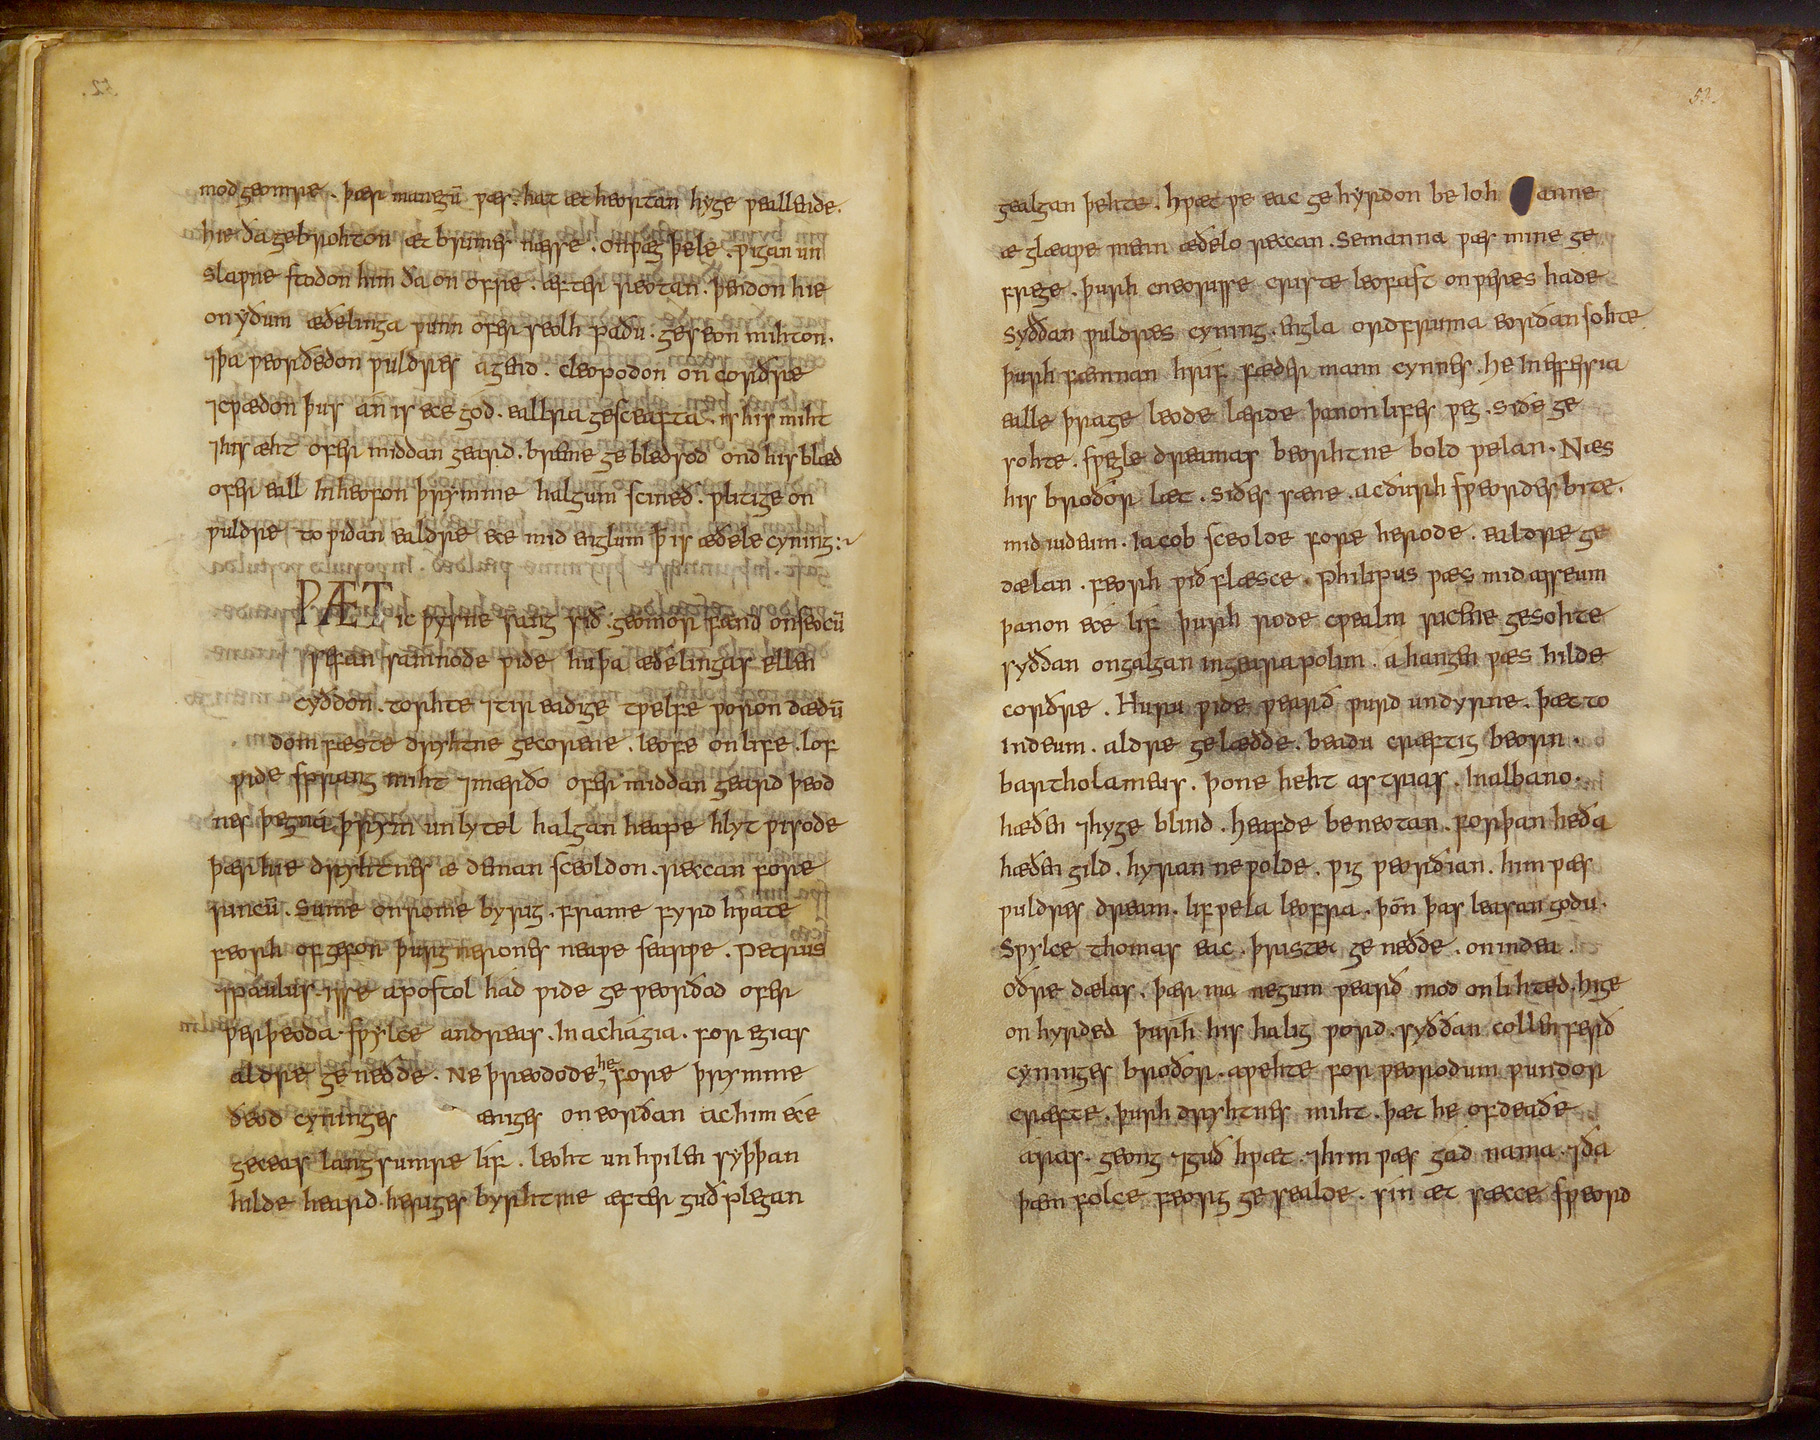 52.
modgeomre. þær manegū ƿæs. hat æt heortan hyge ƿeallende.
hie ða gebrohton æt brimes næsse. on ƿæg þele. ƿigan un
slaƿne stodon him ða on ofre. æfter reotan. þendon hie
on yðum æðelinga ƿunn ofer seolh paðu. geseon mihton.
⁊ þa ƿeorðedon ƿuldres agend. cleopodon on corðre
⁊ cƿædon þus an is ece god. eallra gesceafta. is his miht
⁊ his æht ofer middan geard. breme ge bledsod ond his blæd
ofer eall in heofon þrymme halgum scineð. ƿlitige on
ƿuldre to ƿidan ealdre ece mid englum ꝥ is æðele cyning:~
ǷÆT ic þysne sang sið. geomor fand on seocū
sefan samnode ƿide hu þa æðelingas ellen
cyðdon. torhte ⁊ tir eadige tƿelfe ƿoron dædū
dom fæste dryhtne gecorene. leofe on life. lof
ƿide sprang miht ⁊ mærðo ofer middan geard þeod
nes þegna þrym unlytel halgan heape hlyt ƿisode
þær hie dryhtnes æ deman sceoldon. reccan fore
rincū. Sume on rome byrig. frame fyrd hƿate
feorh ofgefon þurg nerones neaƿe searƿe. Petrus
⁊ paulus. is se apostol had ƿide ge ƿeorðod ofer
ƿer þeoda. sƿylce andreas. In achagia. for egias
aldre ge neðde. Ne þreodode he fore þrymme
ðeod cyninges æniges on eorðan ac him ece
geceas langsumre lif. leoht unhƿilen syþþan
hilde heard. heriges byrhtme æfter guðplegan
52.
gealgan þehte. hƿæt ƿe eac ge hyrdon be ioh anne
æ glæaƿe menn æðelo reccan. Se manna ƿæs mine ge
frege. þurh cneorisse criste leofast on ƿeres hade
syððan ƿuldres cyning. engla ordfruma eorðan sohte
þurh fæmnan hrif fæder mann cynnes. he In effesia
ealle þrage leode lærde þanon lifes ƿeg. siðe ge
sohte. sƿegle dreamas beorhtne bold ƿelan. Næs
his broðor læt. siðes sæne. ac ðurh sƿeordes bite.
mid iudeum. Iacob sceolde fore herode. ealdre ge
dælan. feorh ƿið flæsce. philipus ƿæs mid asseum
þanon ece lif þurh rode cƿealm ricene gesohte
syððan on galgan in gearapolim. ahangen ƿæs hilde
corðre. Huru ƿide ƿearð ƿurd undyrne. þæt to
Indeum. aldre gelædde. beadu cræftig beorn.
bartholameus. þone heht astrias. In albano.
hæðen ⁊ hyge blind. heafde beneotan. forþan he ða
hæðen gild. hyran ne ƿolde. ƿig ƿeorðian. him ƿæs
ƿuldres dream. lif ƿela leofra. þōn þas leasan godu.
Sƿylce thomas eac. þriste ge neðde. on indea
oðre dælas. þær ma negum ƿearð mod onlihted. hige
on hyrded þurh his halig ƿord. syððan collen ferð
cyninges broðor. aƿehte for ƿeorodum ƿundor
cræfte. þurh dryhtnes miht. þæt he of deaðe
aras. geong ⁊ guð hƿæt. ⁊ him ƿæs gad nama. ⁊ ða
þæm folce feorg ge sealde. sin æt sæcce sƿeord